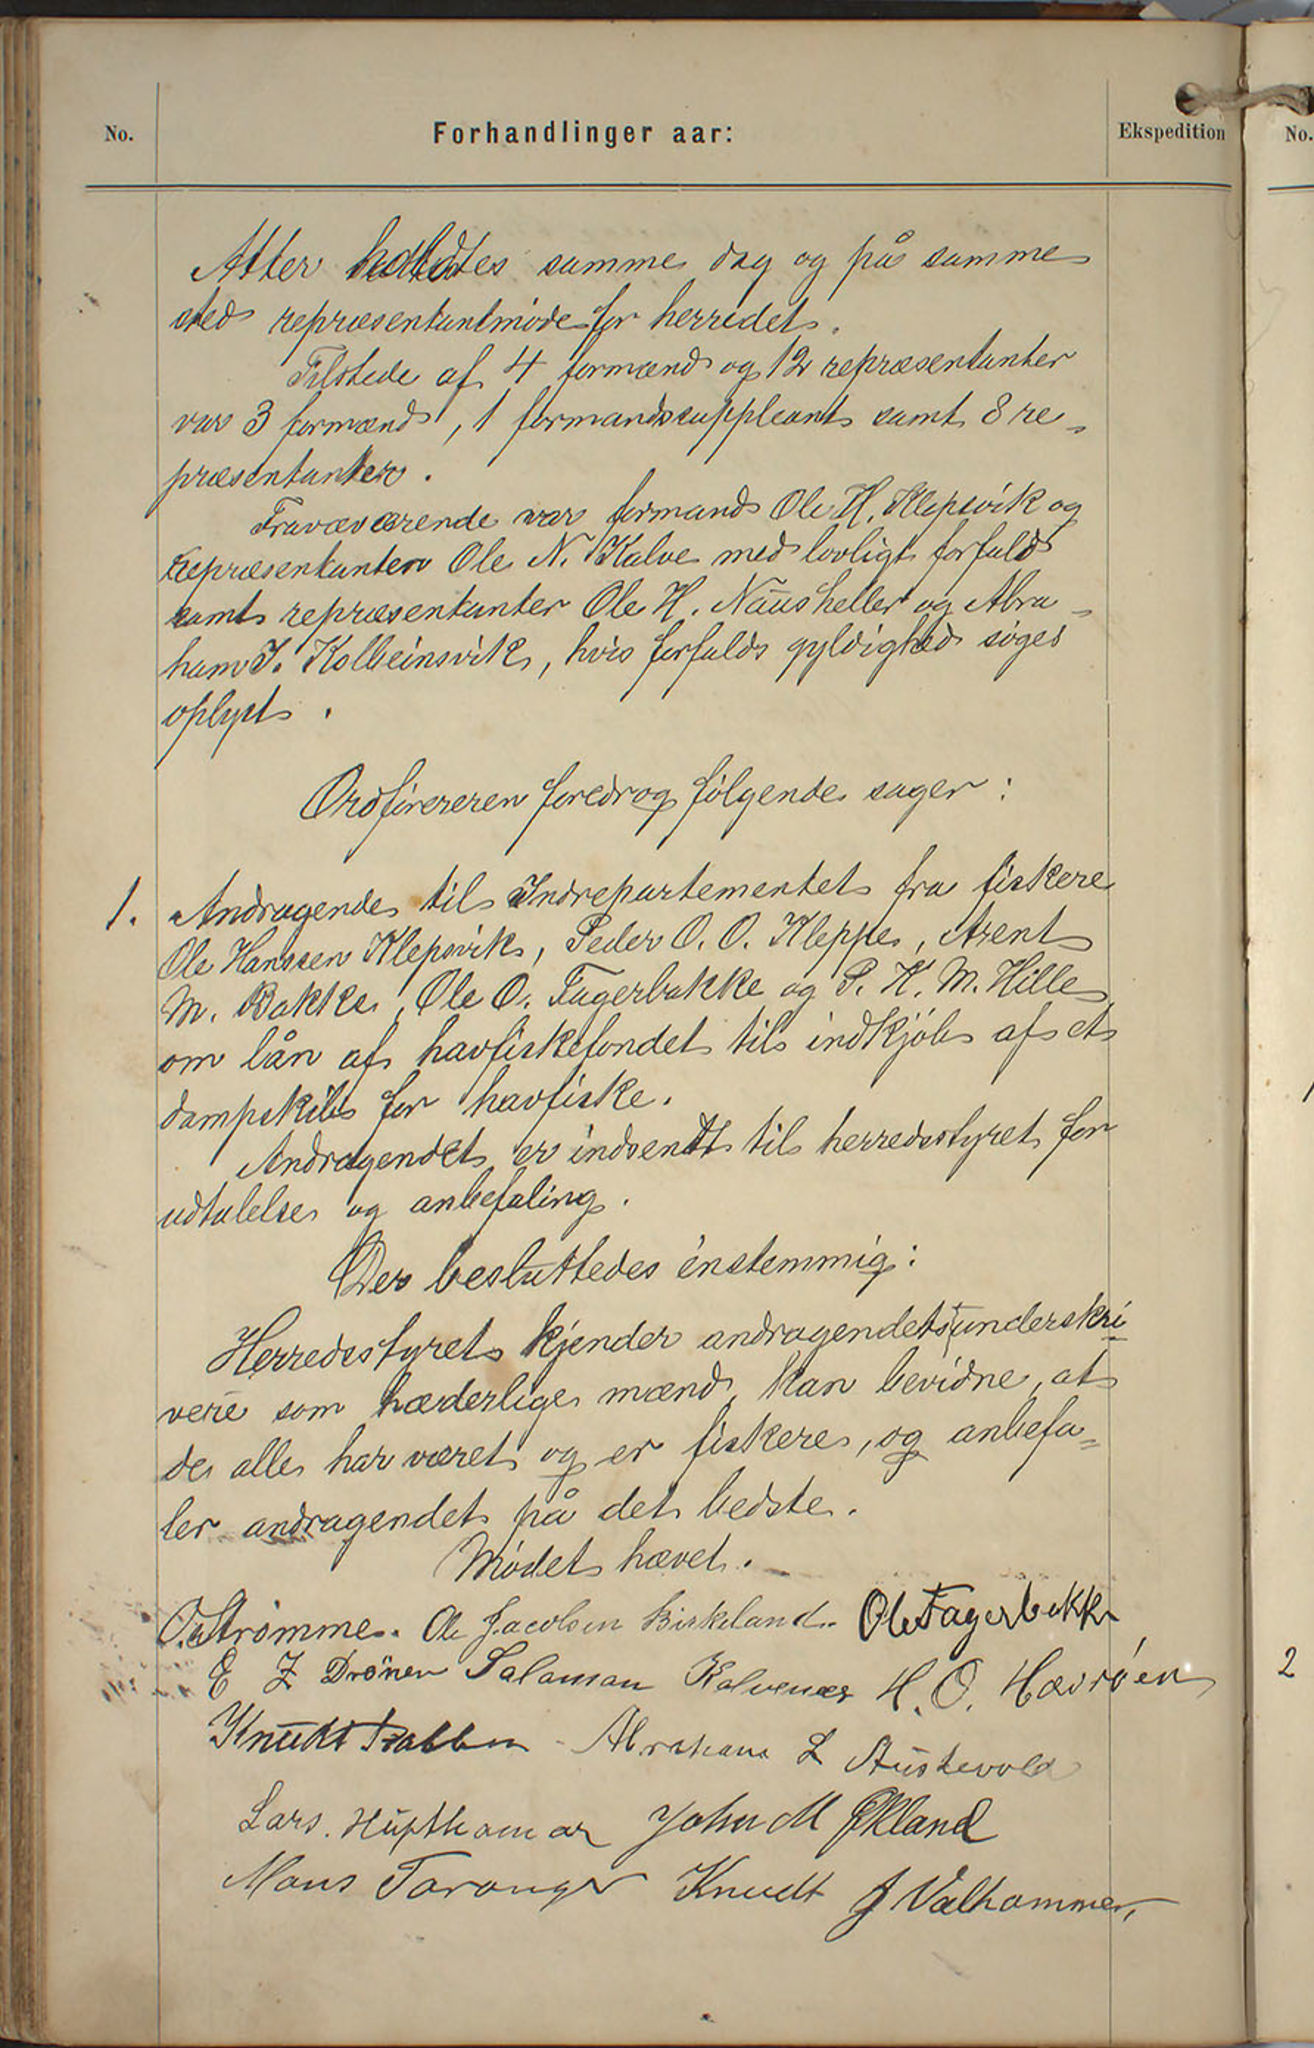 No. Forhandlinger aar: Ekspedition No.
Atter holdtes samme dag og på samme
sted repræsentantmöde for herredet.
Tilstede af 4 formænd og 12 repræsentanter
var 3 formænd, 1 formandssuppleant samt 8 re-
præsentanter.
Fraværende var formand Ole H. Klepsvik og
repræsentanten Ole N. Kalve med lovligt forfald
samt repræsentanter Ole H. Naustheller og Abra-
ham J. Kolbeinsvik, hvis forfalds gyldighed söges
oplyst.
Ordföreren foredrog fölgende sager:
1. Andragende til Indrepartementet fra fiskere
Ole Hanssen Klepsvik, Peder O. O. Kleppe, Arent
M. Bakke, Ole O. Fagerbakke og P. K. M. Hille
om lån af havfiskefondet til indkjöb af et
dampskib for havfiske.
Andragendet er indsendt til herredsstyret for
udtalelse og anbefaling.
Der besluttedes énstemmig:
Herredsstyret kjender andragendets underskri-
vere som hæderlige mænd, kan bevidne, at
de alle har været og er fiskere, og anbefa-
ler andragendet på det bedste.
Mödet hævet.
O. Strømme. Ole Jacobsen Birkeland. Ole Fagerbakk
E Z Drönen Salamon Kalvenes H. O. Hævröen
Knudt Abraham L Austevold
Lars. Hufthamar John M Økland
Mons Taranger Knudt J Valhammer,
2